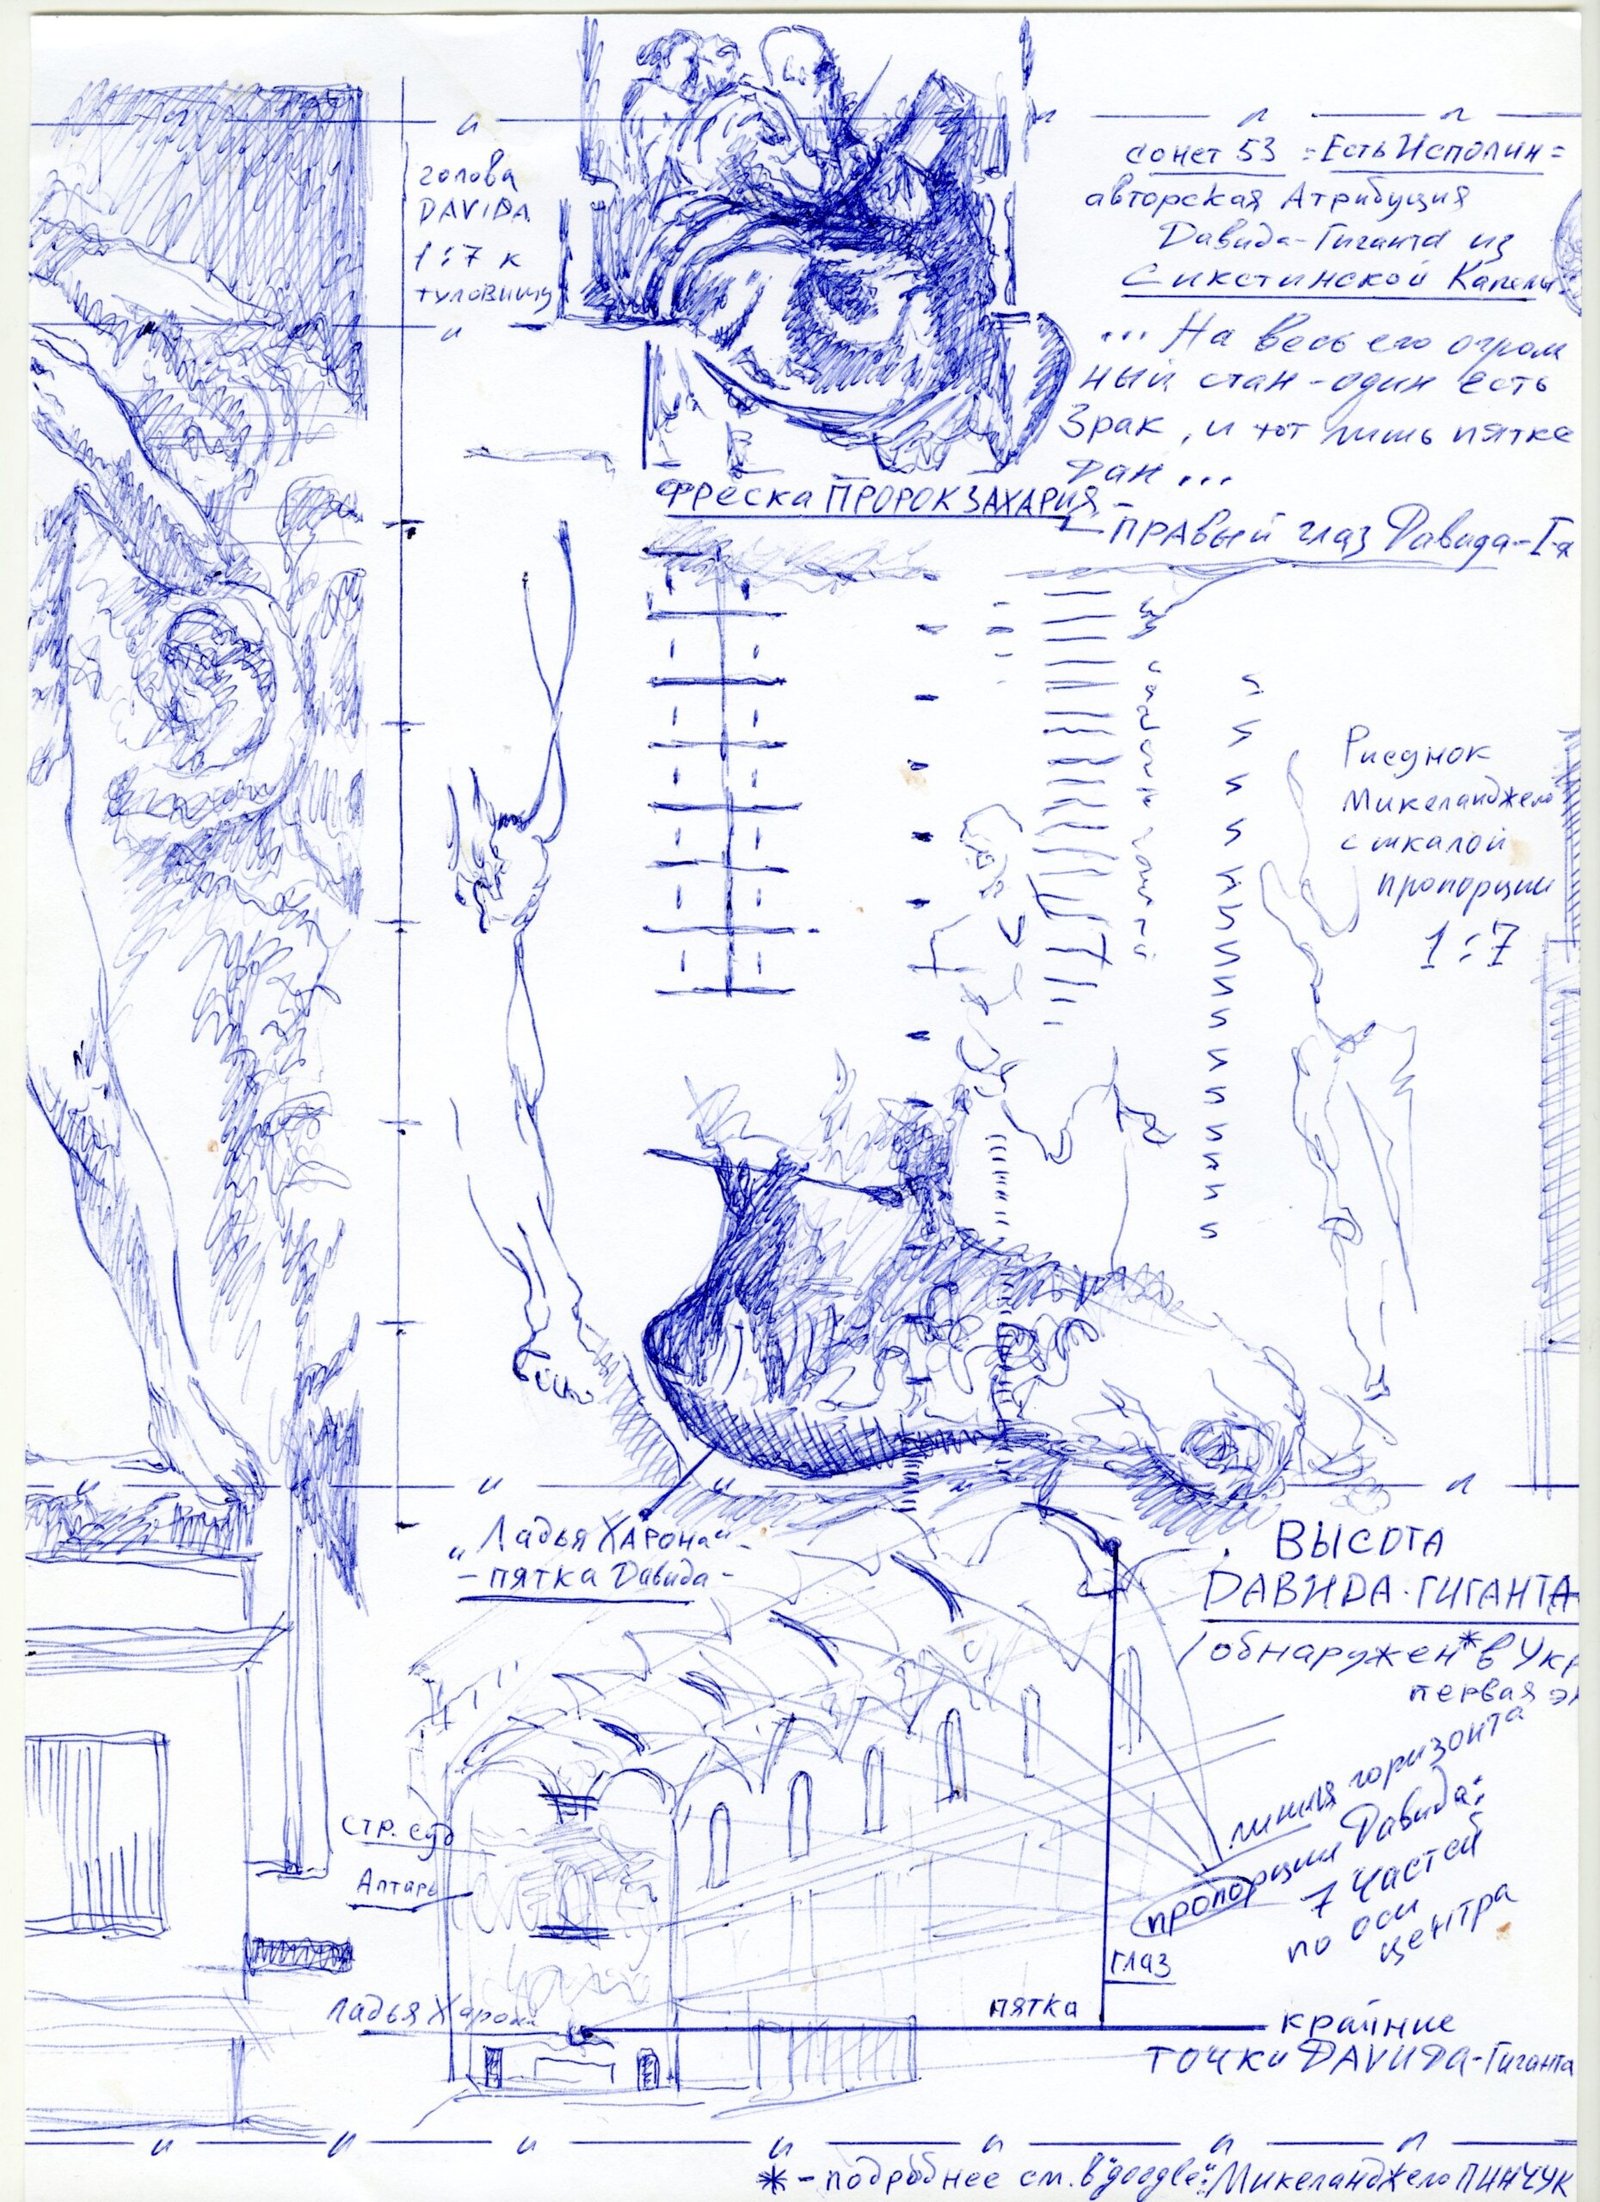 голова
DAVIDA
1:7 к
туловищу
сонет 53 =Есть Исполин=
авторская Атрибуция
Давида-Гиганта из
Сикстинской Капеллы
... На весь его огром
ный стан-один есть
Зрак, и тот лишь пятке
дан...
фреска ПРОРОК ЗАХАРИЯ
-ПРАВЫЙ глаз Давида-Г-я
Рисунок
Микеланджело
с шкалой
пропорции
1:7
„Ладья ХАРОНА"-
-ПЯТКА Давида-
ВЫСОТА
DАВИDА-ГИГАНТА
/обнаружен* в Укр
первая
линия горизонта
пропорции Давида:
7 частей
по оси
центра
стр. суд
Алтарь
глаз
Ладья Харона
пятка
крайние
точки DАVИDА-Гиганта
* - подробнее см. в "google": Микеланджело ПИНЧУК